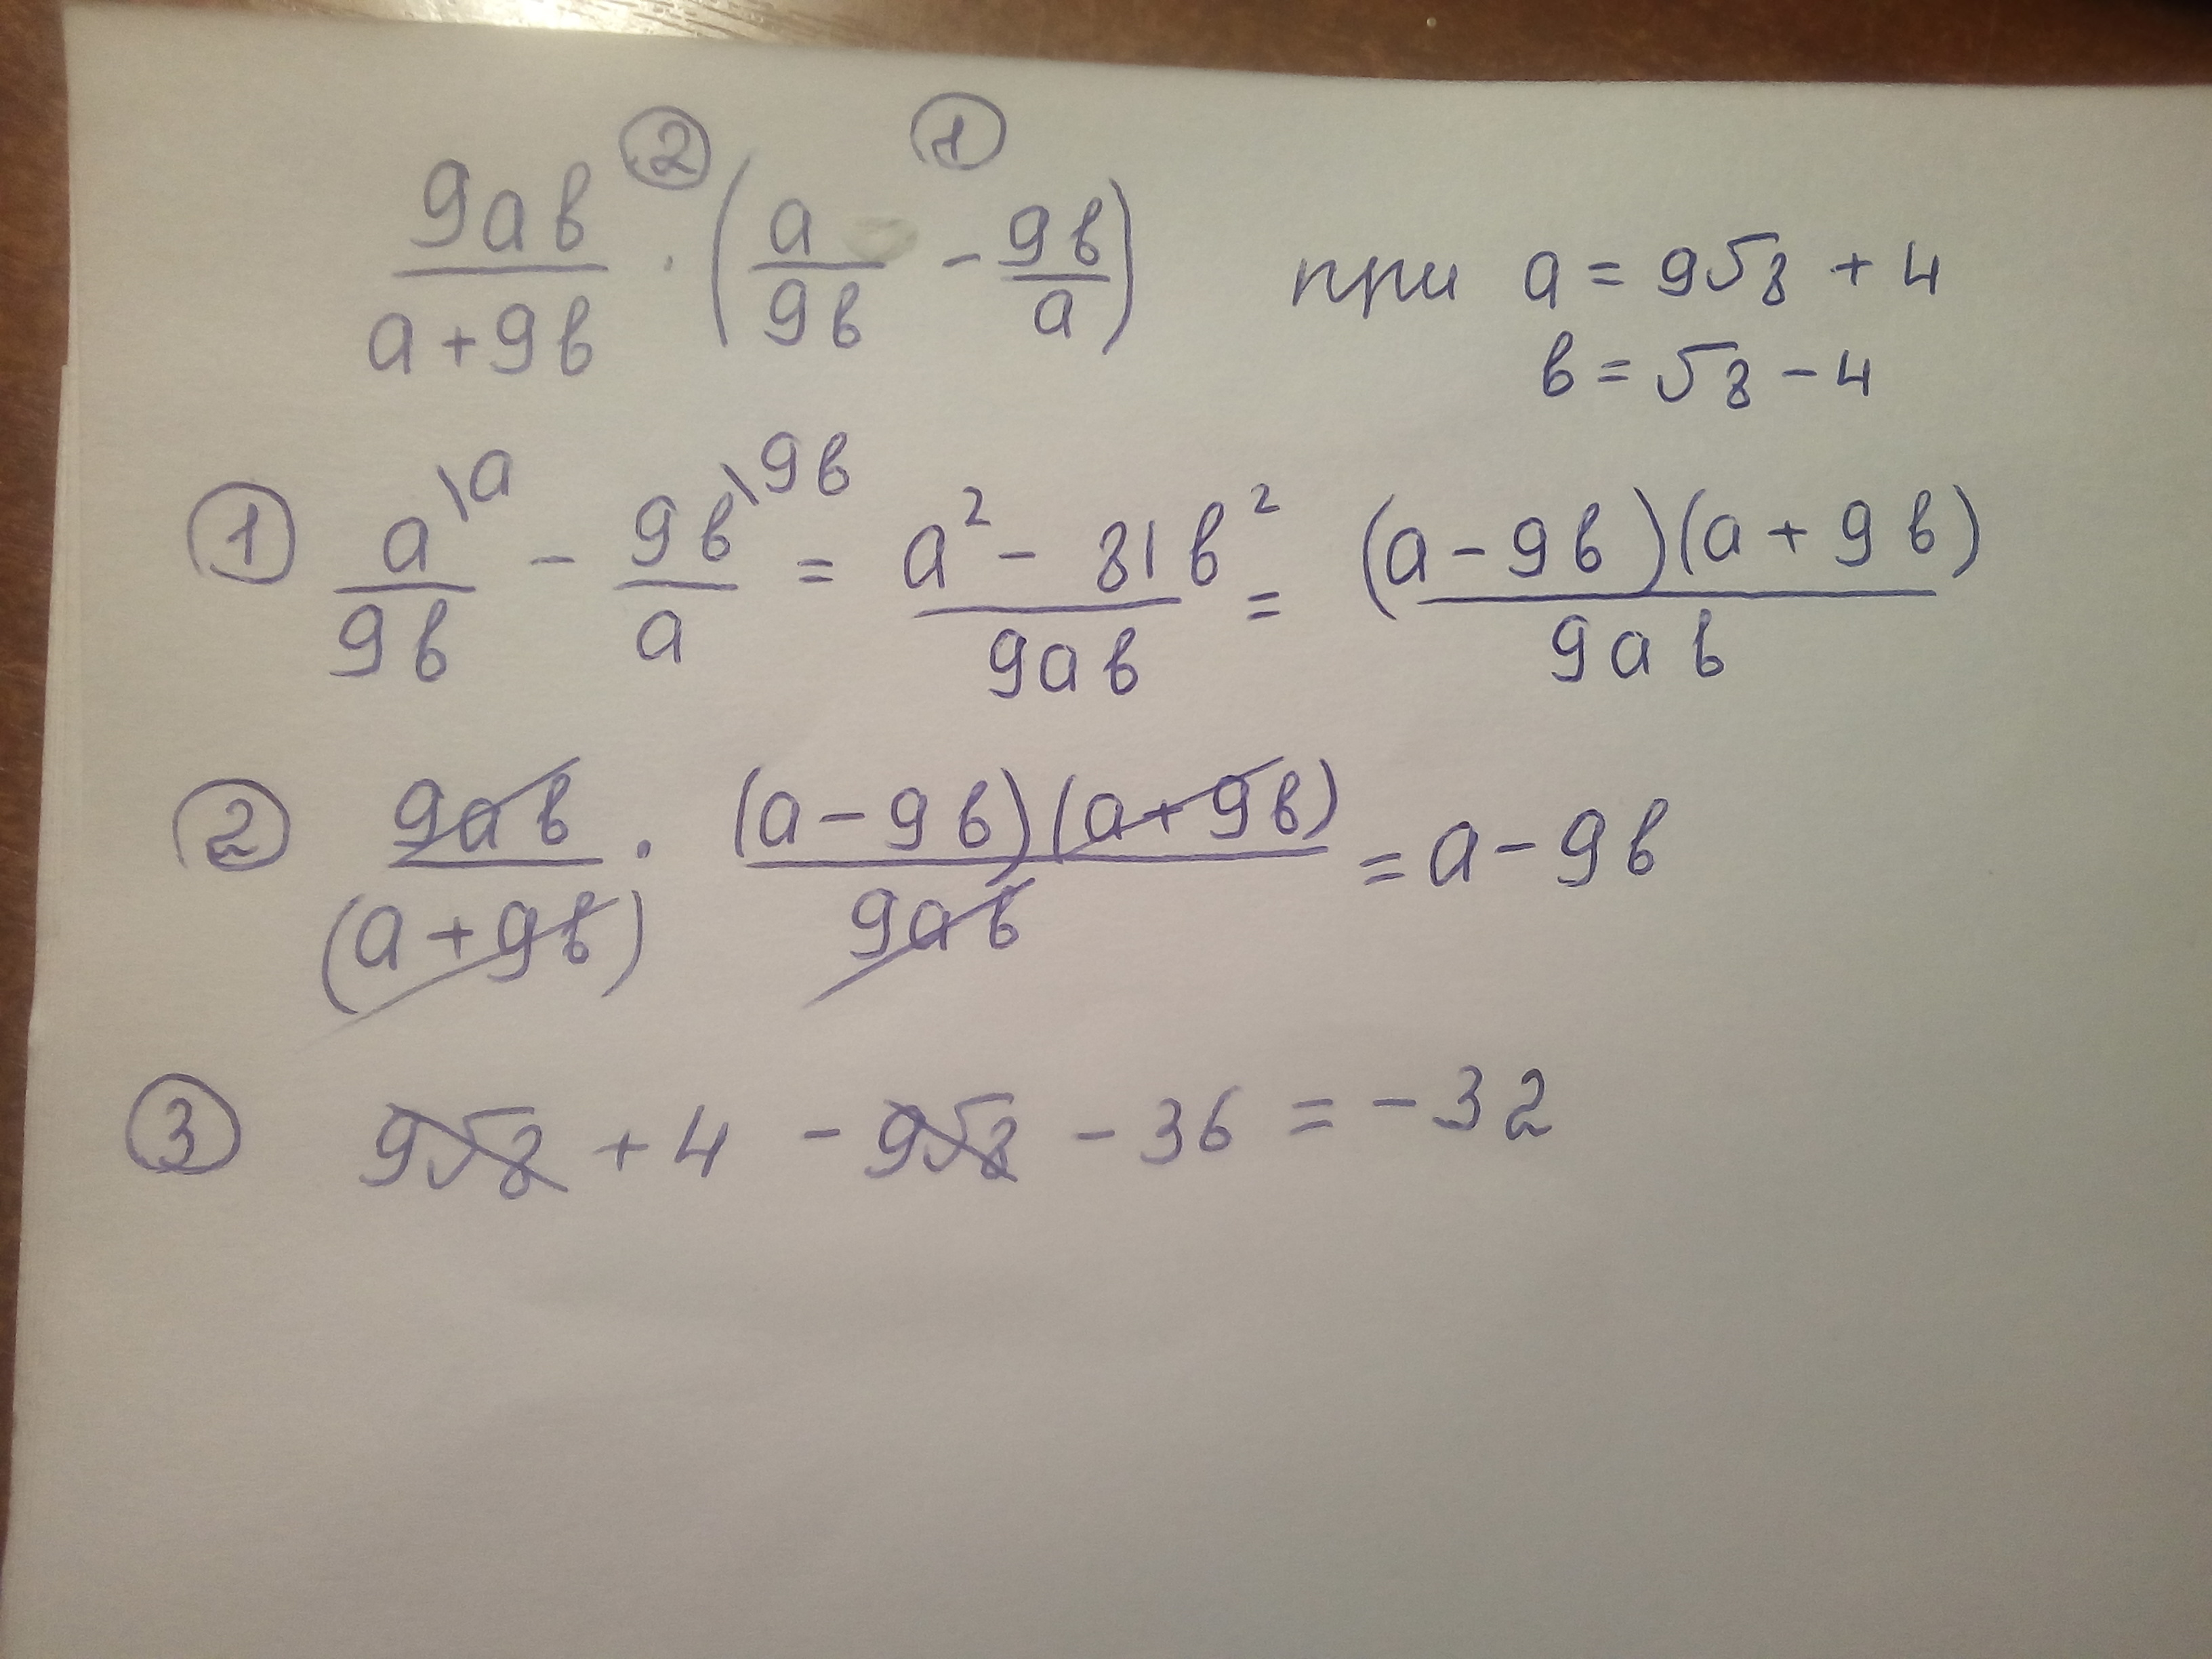 ② ①
9ab/(a+9b) · (a/9b - 9b/a) при a = 9√8 + 4
b = √8 - 4
① a/9b \a - 9b/a \9b = (a² - 81b²)/9ab = (a-9b)(a+9b)/9ab
② 9ab/(a+9b) · (a-9b)(a+9b)/9ab = a-9b
③ 9√8 + 4 - 9√8 - 36 = -32